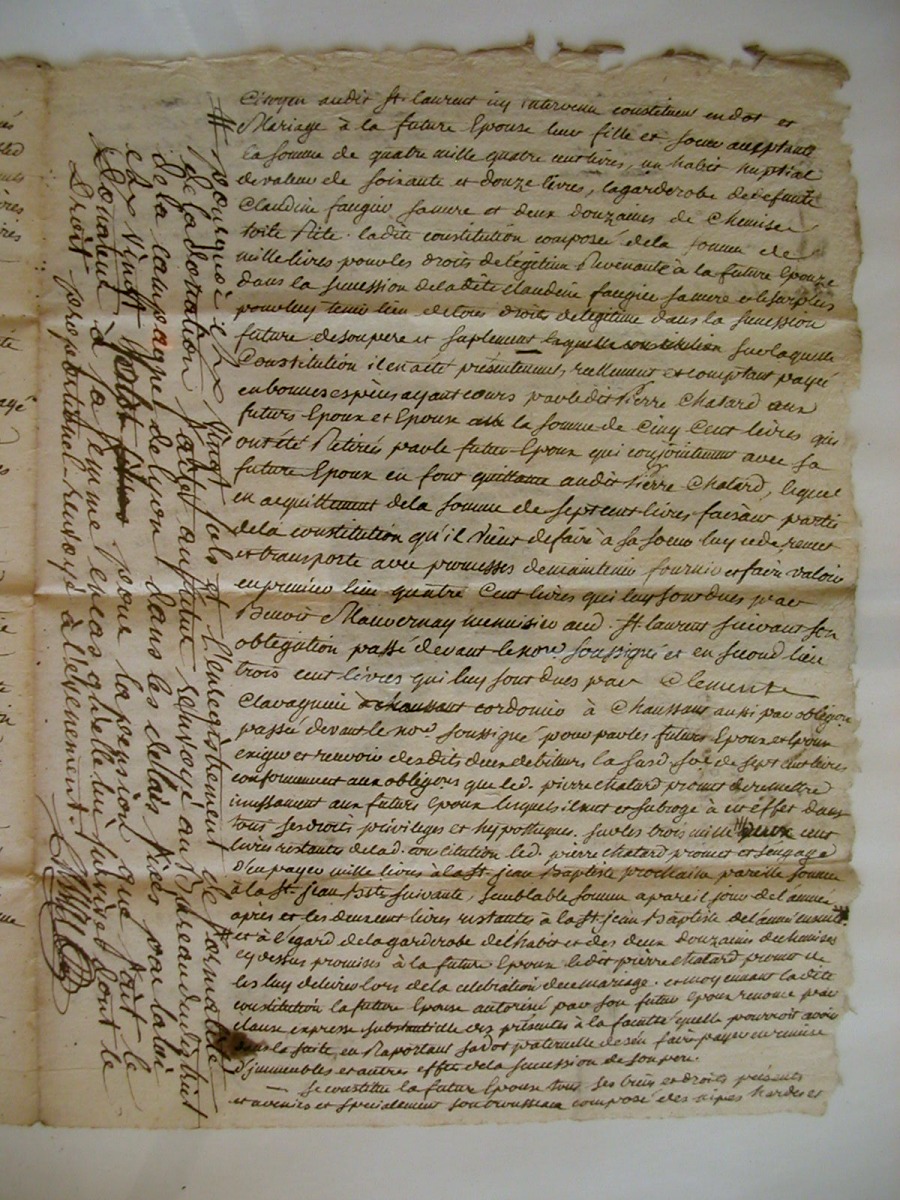 Citoyen audit St. laurent icy intervenu constituent en dot et
Mariage à la future Epouse leur fille et soeur acceptante
la somme de quatre mille quatre cent livres, un habit nuptial
de valeur de soixante et douze livres, la garderobe de defunte
Claudine faugier sa mere et deux douzaines de Chemise
toile Rite. la dite constitution composée de la somme de
mille livres pour les droits de legitime Revenants à la future Epouze
dans la succession de la dite Claudine faugier sa mere et le surplus
pour luy tenir lieu de tous droits de legitime dans la succession
future de son pere et suplement sur laquelle
Constitution il en a été présentement, reellement et comptant payé
en bonnes espèces ayant cours par ledit Pierre Chatard aux
futurs Epoux et Epouse la somme de Cinq Cent livres qui
ont été Retirés par le futur Epoux qui conjointement avec sa
future Epouse en font quittance audit Pierre Chatard, lequel
en acquittement de la somme de sept cent livres faisant partie
de la constitution qu'il vient de faire à sa soeur luy cede remet
et transporte avec promesses de maintenir fournir et faire valoir
en premier lieu quatre Cent livres qui luy sont dues par
Benoit Mauvernay menuisier aud. St. laurent suivant son
obligation passé devant le nore soussigné et en second lieu
trois cent livres qui luy sont dues par Clemente
Clavagnier cordonier à Chaussant aussi par obligon
passée devant le nore soussigné pour par les futurs Epoux et Epouse
exiger et recevoir desdits deux debiteurs la susd. soe de sept cent livres
conformement aux obligons que led. pierre Chatard promet de remettre
incessament aux futurs Epoux lesquels il met et subroge à cet effet dans
tous ses droits privileges et hypotteques. sur les trois mille deux cent
livres restantes de lad. constitution led. pierre Chatard promet et s'engage
d'en payer mille livres à la St. jean Baptiste prochaine pareille somme
à la St. jean Bste suivante, semblable somme a pareil jour de l'année
après et les deux cent livres restantes à la St. jean Baptiste de l'année ensuite
et à l'égard de la garderobe de l'habit et des deux douzaines de chemises
cy dessus promises à la future Epouse ledit pierre Chatard promet de
les luy delivrer lors de la celebration de ce mariage. et moyennant la dite
constitution la future Epouse autorisée par son futur Epoux renonce par
clause expresse substantielle des présentes à la faculté qu'elle pourroit avoir
dans la suite, en Raportant sa dot paternelle de s'en faire payer en
d'immeubles et autres effets de la succession de son pere.
— se constitue la future Epouse tous ses biens et droits présents
et avenirs et specialement son trousseau composé des nipes hardes et
# pourquoi Vingt sols et l'enregistrement de formalité
de la donation futur renvoyé au Bureau du district
de la Campagne de Lyon dans les delais fixés par la loi
Vingt pour la pension que fait le
Donateur à sa femme en cas qu'elle lui survive dont le
Droit proportionnel renvoyé à l'evenement.